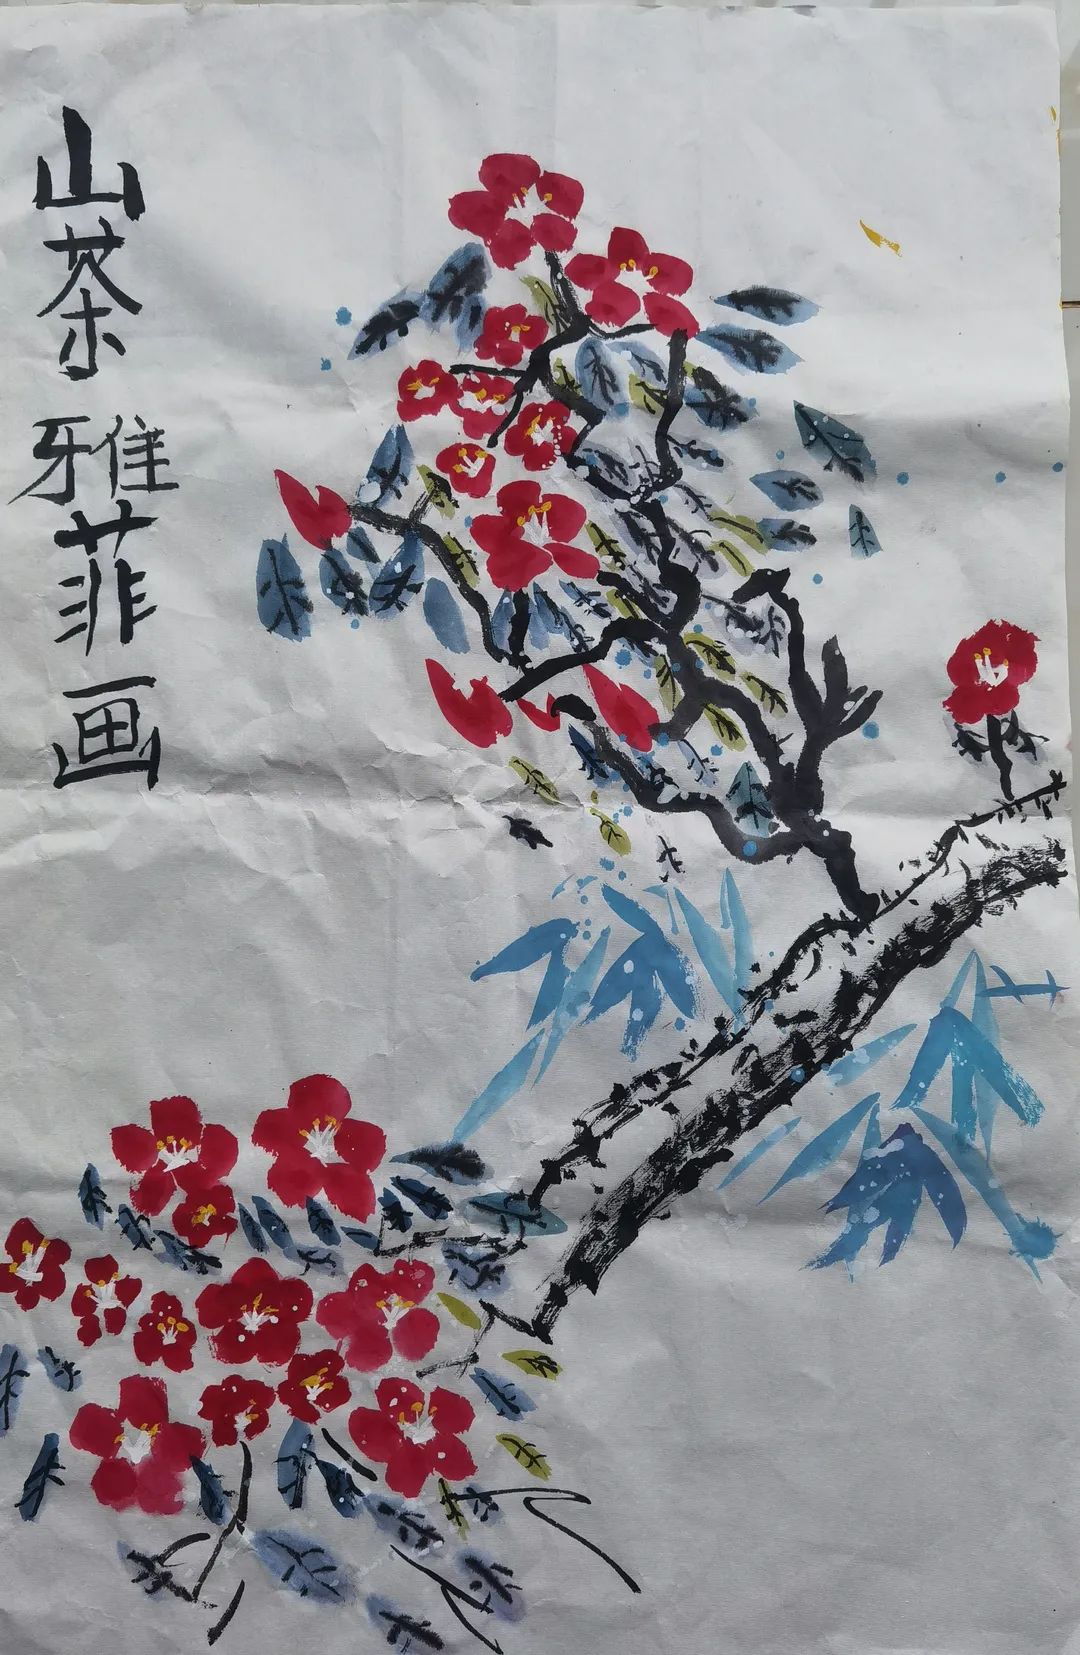 山茶 雅菲画